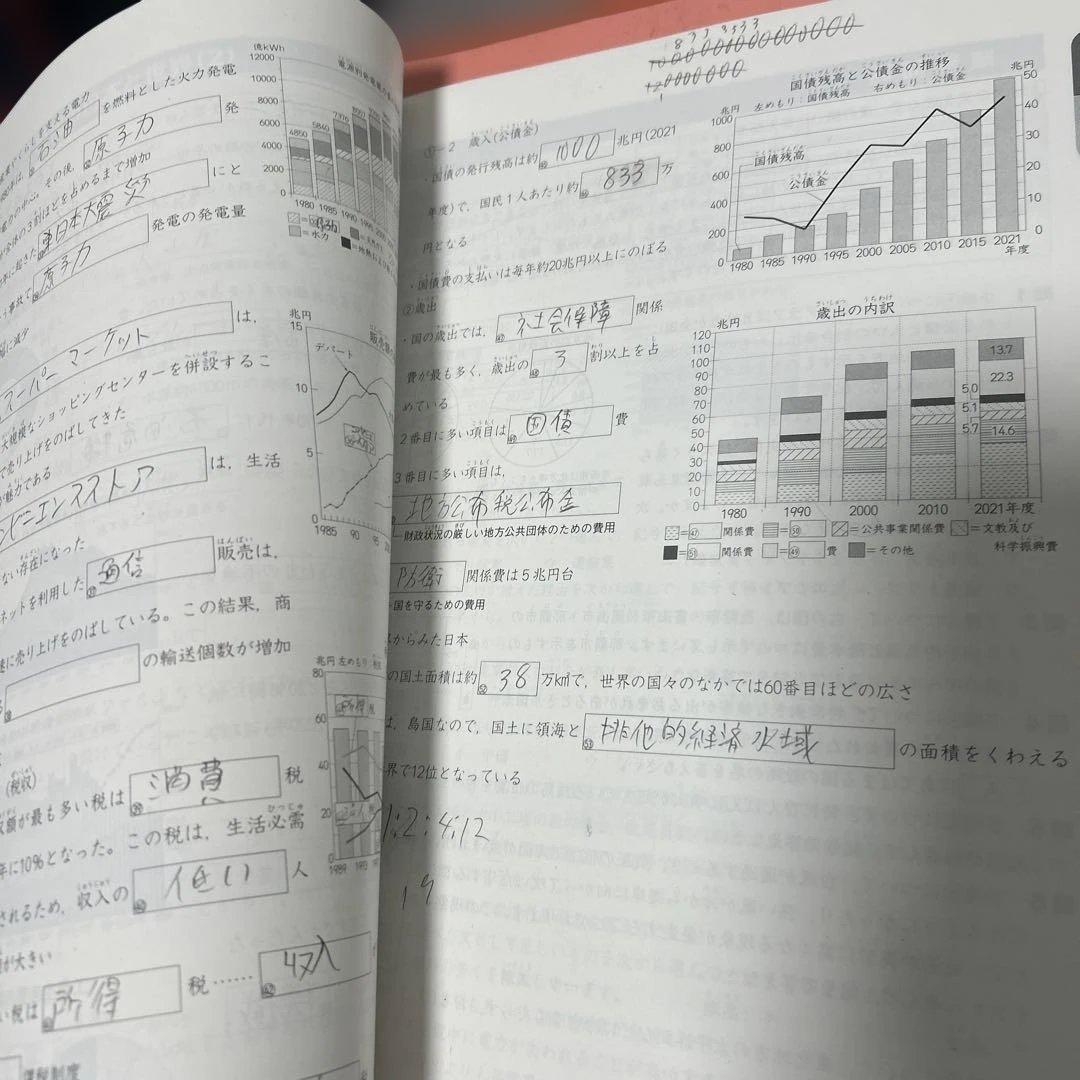 くらしを支える電力
石油
を燃料とした火力発電
その後,
原子力
発
が全体の3割ほどを占めるまで増加
年に起きた
東日本大震災
にと
事故で
原子力
発電の発電量
に減少
スーパーマーケット
は,
大規模なショッピングセンターを併設するこ
で売り上げをのばしてきた
魅力である
は, 生活
ない存在になった
ネットを利用した
通信
販売は,
に売り上げをのばしている。この結果, 商
の輸送個数が増加
(税収)
額が最も多い税は
消費
税
年に10%となった。この税は, 生活必需
されるため, 収入の
低い
人
が大きい
い税は
所得
税……
収入
課税制度
億kWh
12000
10000
8000
6000
4000
2000
0
4850
5840
7376
1980 1985 1990 1995 2000
=水力
兆円
15
10
5
0
デパート
1985 90 95
兆円 左めもり
80
60
40
20
0
所得税
1989
8333533
①-2 歳入(公債金)
・国債の発行残高は約
1000
兆円(2021
年度)で, 国民1人あたり約
833
万
円となる
・国債費の支払いは毎年約20兆円以上にのぼる
②歳出
・国の歳出では,
㊼
社会保障
関係
費が最も多く, 歳出の
㊽
3
割以上を占
めている
2番目に多い項目は
㊾
国債
費
3番目に多い項目は,
地方公布税公布金
財政状況の厳しい地方公共団体のための費用
防衛
関係費は5兆円台
・国を守るための費用
からみた日本
の国土面積は約
38
万km²で, 世界の国々のなかでは60番目ほどの広さ
は, 島国なので, 国土に領海と
排他的経済水域
の面積をくわえる
界で12位となっている
1:2:4:12
19
国債残高と公債金の推移
兆円 左めもり:国債残高 右めもり:公債金 兆円
1000
800
600
400
200
0
50
40
30
20
10
0
国債残高
公債金
1980 1985 1990 1995 2000 2005 2010 2015 2021
年度
歳出の内訳
兆円
120
110
100
90
80
70
60
50
40
30
20
10
0
13.7
22.3
5.0
5.1
5.7
14.6
1980 1990 2000 2010 2021年度
=㊼ 関係費 =㊿ =公共事業関係費 =文教及び
科学振興費
=51 関係費 =㊾ 費 =その他